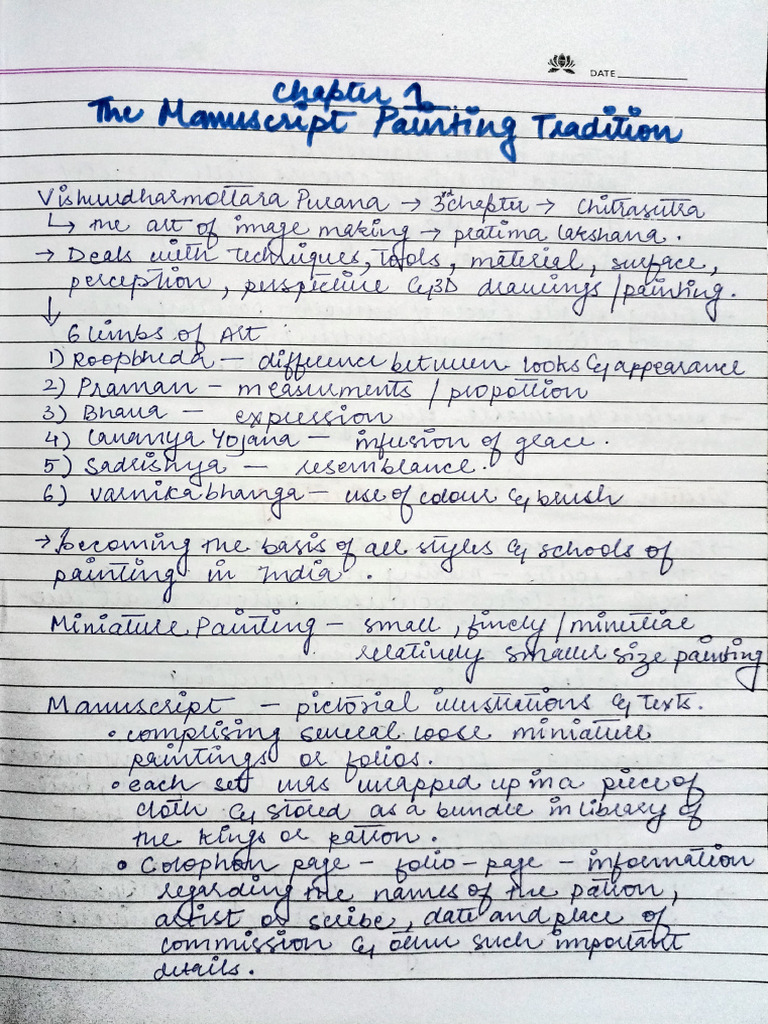 DATE
Chapter 1.
The Manuscript Painting Tradition
Vishnudharmottara Purana → 3rd chapter → Chitrasutra
↳ the art of image making → pratima lakshana.
→ Deals with techniques, tools, material, surface,
perception, perspective & 3D drawings/painting.
↓
6 limbs of Art
1) Roopbheda — difference between looks & appearance
2) Praman — measurments / propotion
3) Bhava — expression
4) Lavanya Yojana — infusion of grace.
5) Sadrishya — resemblance.
6) Varnikabhanga — use of colour & brush
→ becoming the basis of all styles & schools of
painting in India.
Miniature Painting — small, finely/
relatively smaller size painting
Manuscript — pictorial illustrations & texts.
• comprising several loose miniature
paintings or folios.
• each set was wrapped up in a piece of
cloth & stored as a bundle in library of
the kings or patron.
• Colophon page — folio-page — information
regarding the names of the patron,
artist or scribe, date and place of
commission & other such important
details.